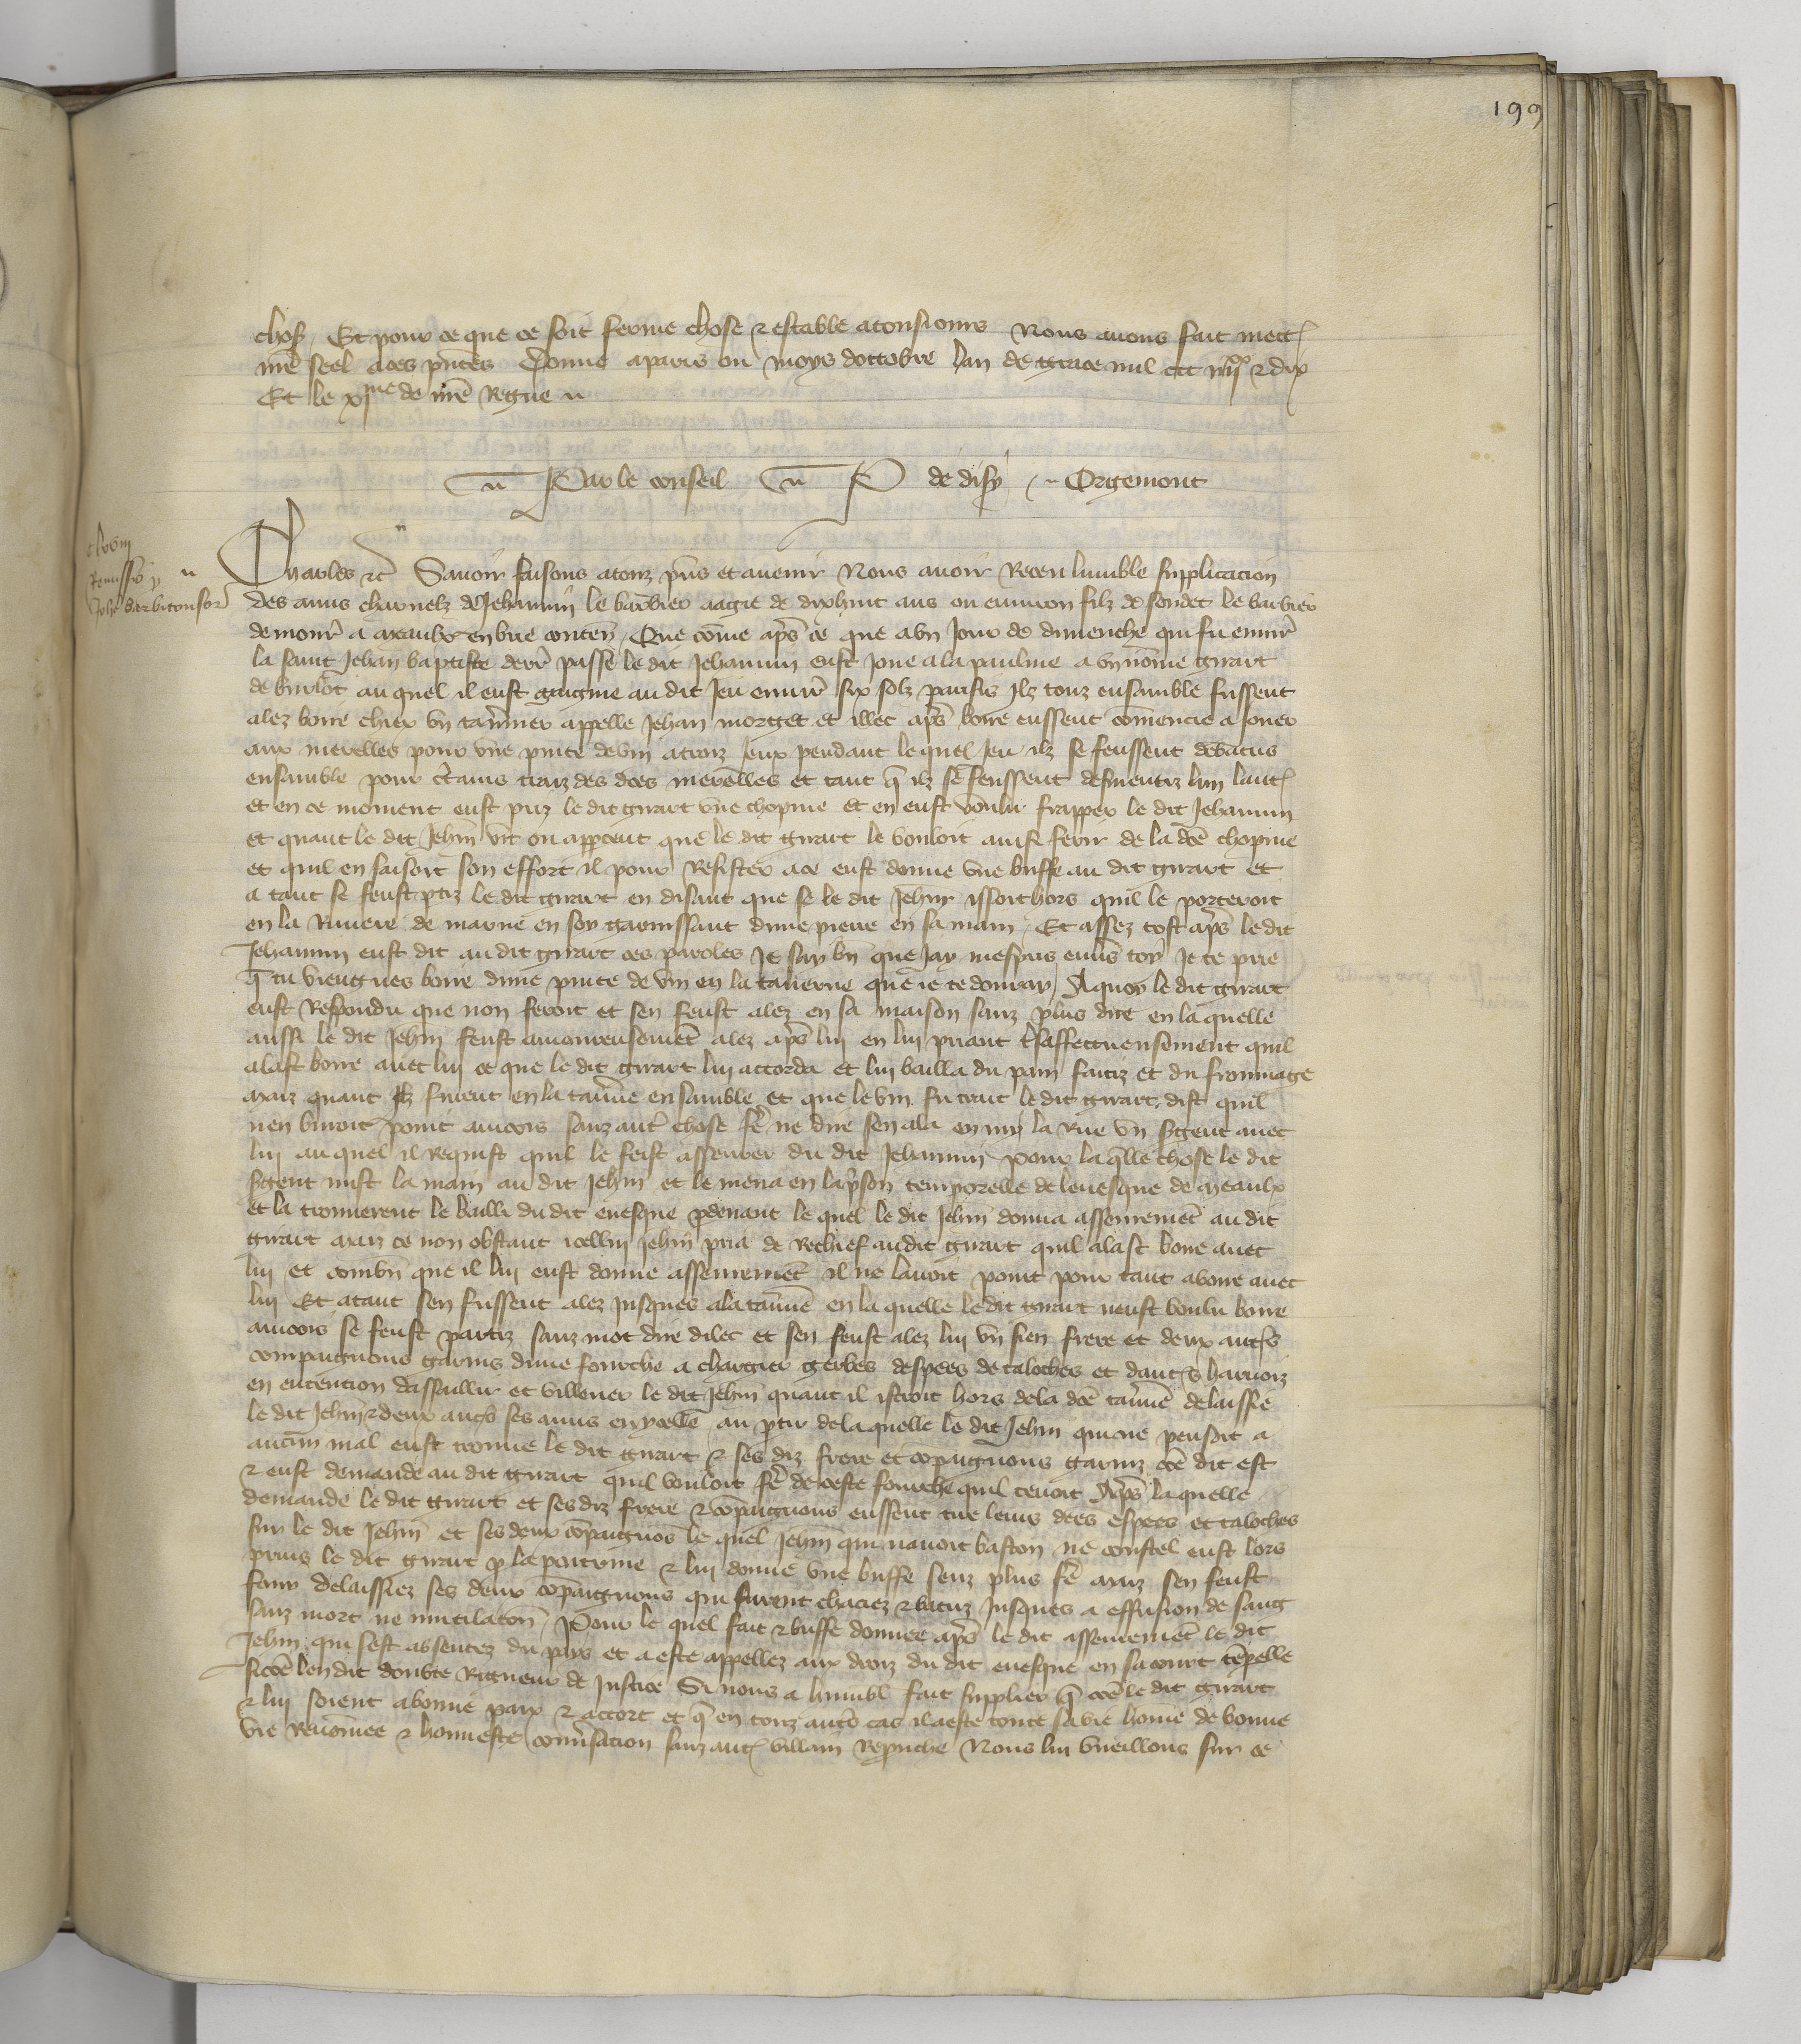 199
chos. Et pour ce que ce soit ferme chose & estable a tousiours Nous auons fait mectr
nre seel a ces pntes Donne a paris ou moys doctobre lan de grace mil ccc iiiixx & dix
Et le xjme de nre Regne
Par le conseil P de disy Orgemont
Remissio p
Johe barbitonsor
Charles etc Sauoir faisons a touz pns et auenir Nous auoir Receu lumble supplicacion
des amis charnelz de Jehannin le barbier aagie de dixhuit ans ou enuiron filz de soudet le barbier
demour a meaulx en brie conten Que come apres ce que a vn Jour de dimenche qui fu enuir
la saint Jehan baptiste derr passe le dit Jehannin eust Joue a la paulme a vn nome girart
de buirlot au quel il eust gaigne au dit Jeu enuir six solz parisis Ilz touz ensamble fussent
alez boire chiex vn tauernier appelle Jehan morget et illec apres boire eussent comencie a Jouer
aux merelles pour vne pinte de vin a trois Jeux pendant le quel Jeu ilz se feussent debatus
ensamble pour certains traiz des dces merelles et tant q ilz se feussent desmentiz lun lautr
et en ce moment eust priz le dit girart vne chopine et en eust voulu frapper le dit Jehannin
et quant le dit Jehnin vit ou apperceut que le dit girart le vouloit ainsi ferir de la dce chopine
et quil en faisoit son effort il pour Resister a ce eust donne vne buffe au dit girart et
a tant se feust ptiz le dit girart en disant que se le dit Jehnin issoit hors quil le porteroit
en la Riuiere de marne en soy garnissant dune pierre en sa main Et assez tost apres le dit
Jehannin eust dit au dit girart ces paroles Je say bn que Jay mespris enuers toy Je te prie
q tu viengnes boire dune pinte de vin en la tauerne que ie te donray A quoy le dit girart
eust Respondu que non feroit et sen feust alez en sa maison sanz plus dire en la quelle
aussi le dit Jehnin feust amoureusemet alez apres lui en lui priant tresaffectueusement quil
alast boire auec lui ce que le dit girart lui accorda et lui bailla du pain faitiz et du frommage
maiz quant ilz furent en la tauerne ensamble et que le vin fu trait le dit girart dist quil
nen buroit point aincois sanz autre chose fere ne dire sen ala en my la Rue vn sergent auec
lui au quel il Requist quil le feist asseurer du dit Jehannin Pour la qlle chose le dit
sergent mist la main au dit Jehnin et le mena en la prison temporelle de leuesque de meaulx
et la trouuerent le bailli du dit euesque p deuant le quel le dit Jehnin donna asseuremet au dit
girart maiz ce non obstant icellui Jehnin pria de Rechief au dit girart quil alast boire auec
lui et combn que il lui eust donne asseuremet il ne lauoit point pour tant a boire auec
lui Et atant sen fussent alez Jusques a la tauerne en la quelle le dit girart neust voulu boire
aincois se feust partiz sanz mot dire dilec et sen feust alez lui vn sien frere et deux autres
compaignons garnis dune fourche a chargier gerbes despees de taloches et dautres harnoiz
en entencion dassaillir et villener le dit Jehnin quant il istroit hors de la dce tauerne delaissie
le dit Jehnin & deux autres ses amis en ycelle au ptir de la quelle le dit Jehnin qui ne pensoit a
aucun mal eust trouue le dit girart & ses diz frere et copaignons garniz coe dit est
& eust demande au dit girart quil vouloit fere de ceste fourche quil tenoit Apres laquelle
demande le dit girart et ses diz frere & copaignons eussent tire leurs dces espees et taloches
sur le dit Jehnin et ses deux copaignos le quel Jehnin qui nauoit baston ne coustel eust lors
priuz le dit girart p la poitrine & lui donne vne buffe senz plus fere maiz sen feust
fouy delaissiez ses deux copaignons qui furent chaciez & batuz Jusques a effusion de sang
sanz mort ne mutilacon Pour le quel fait & buffe donnee apres le dit asseuremet le dit
Jehnin qui sest absentez du pays et a este appellez aux droiz du dit euesque en sa court tepelle
si coe len dit doubte Rigueur de Justice Si nous a humbl fait supplier q coe le dit girart
& lui soient a bonne paix & accort et q en touz autres cas il a este toute sa vie home de bonne
vie Renomee & honneste conuersacion sanz autr villain Repruche Nous lui vueillons sur ce